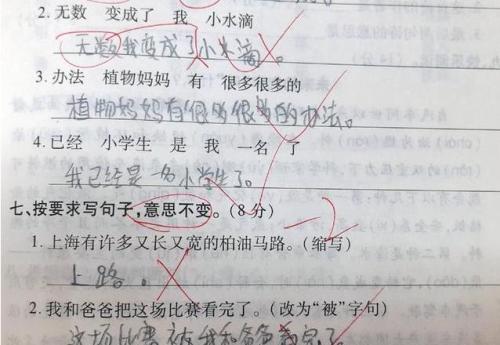 2.无数 变成了 我 小水滴
(无数我变成了小水滴。
3.办法 植物妈妈 有 很多很多的
植物妈妈有很多很多的办法。
4.已经 小学生 是 我 一名 了
我已经是一名小学生了。
七、按要求写句子,意思不变。(8分) -2
1.上海有许多又长又宽的柏油马路。(缩写)
上路。
2.我和爸爸把这场比赛看完了。(改为“被”字句)
这场比赛被我和爸爸看完了。